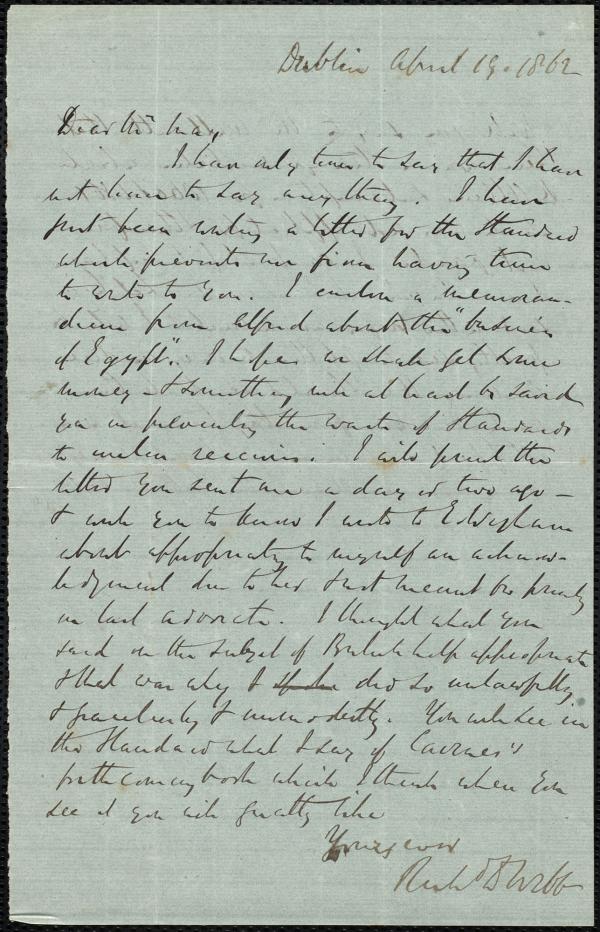 Dublin April 19. 1862
Dear Mr May
I have only time to say that I have
not time to say any thing. I have
just been writing a letter for the Standard
which prevents me from having time
to write to you. I enclose a memoran-
dum from Alfred about the "business
of Egypt". I hope we shall get some
money & something will at least be saved
you in preventing the waste of Standards
to useless receivers. I will print the
letter you sent me a day or two ago —
& wish you to know I wrote to Edinburgh
about appropriating to myself an acknow-
ledgment due to her & not meant for printing
in last advocate. I thought what you
said on the subject of British help appropriate
& that was why I did so unlawfully
& & immodestly. You will see in
the Standard what I say of Cairnes's
forthcoming book which I think when you
see it you will greatly like
Yours ever
Richd D Webb